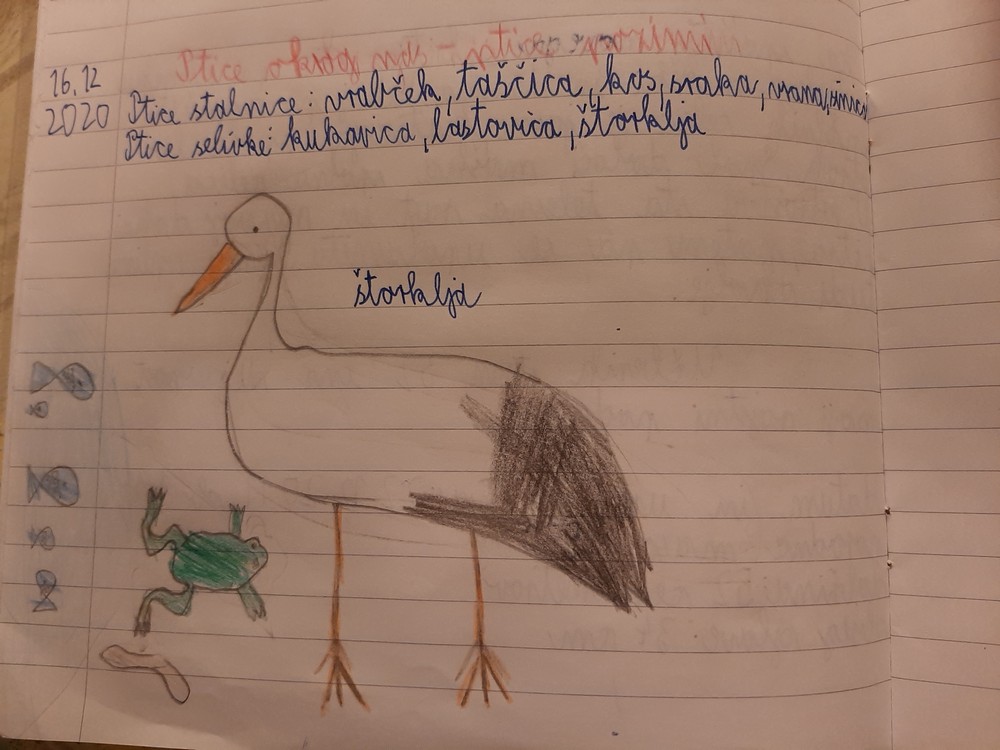 Ptice okrog nas - ptice pozimi
16.12
2020
Ptice stalnice: vrabček, taščica, kos, sraka, vrana, sinica
Ptice selivke: kukavica, lastovica, štorklja
štorklja